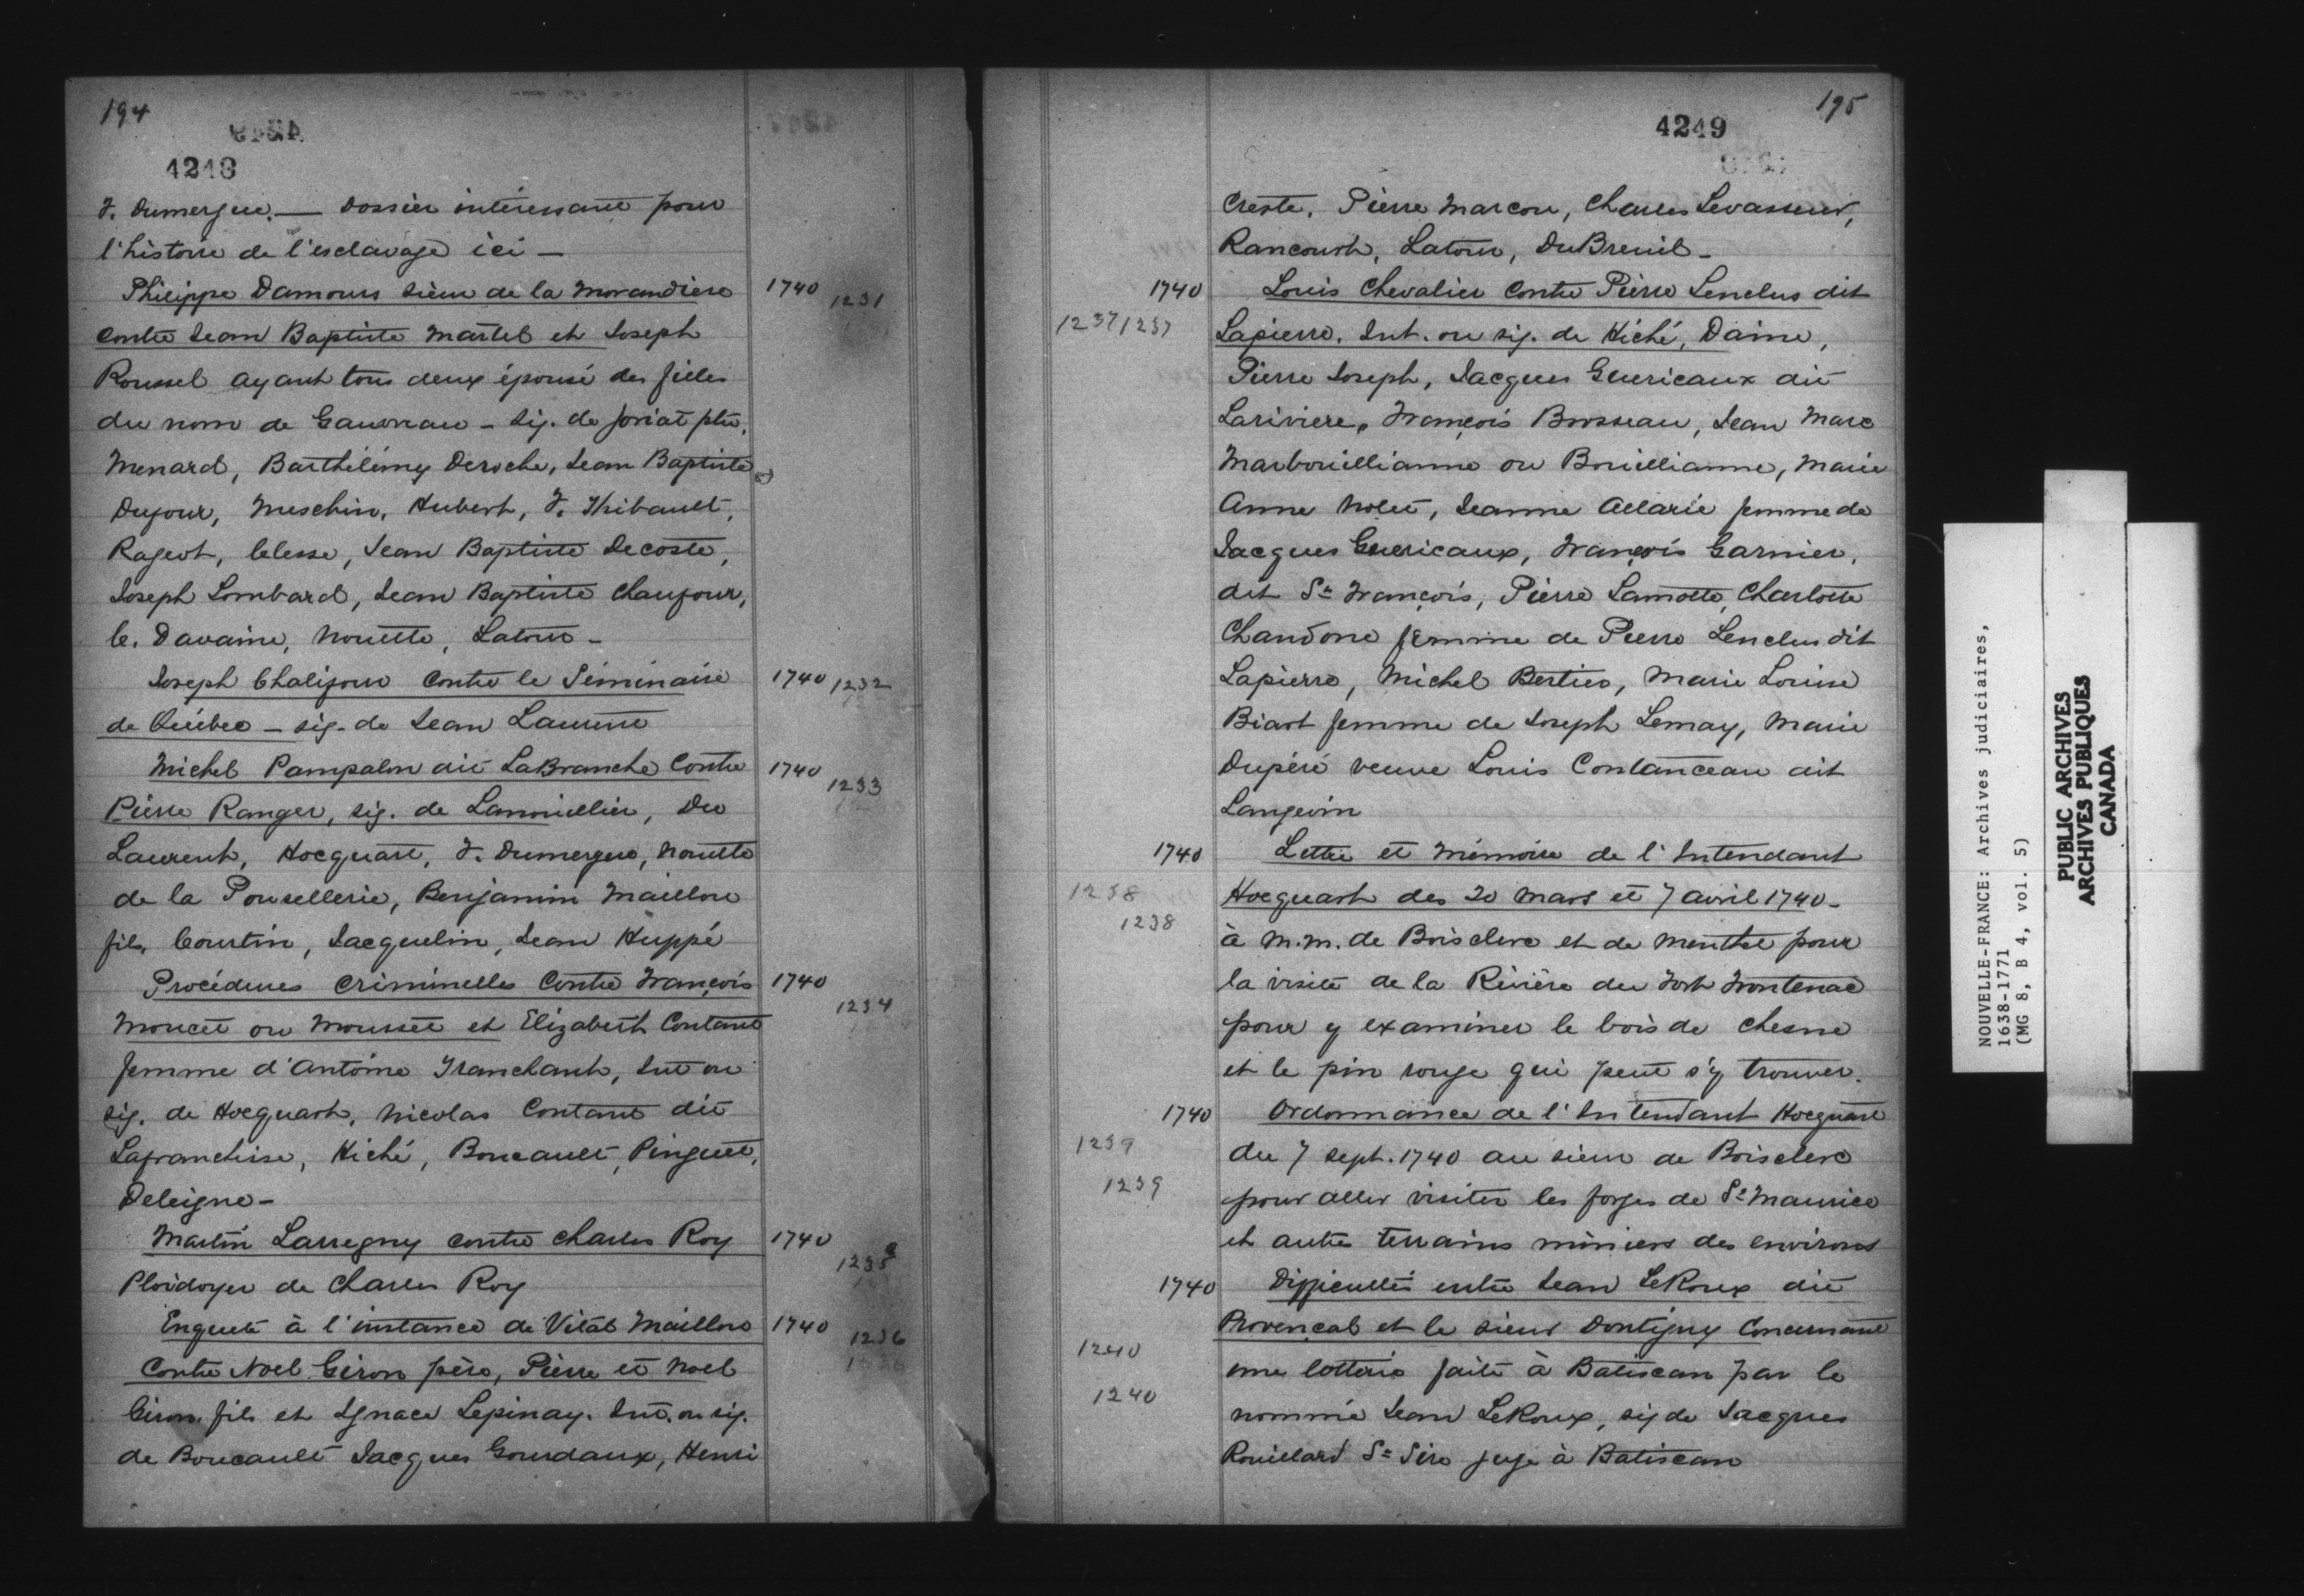 194
4248
F. Dumergue. — Dossier intéressant pour
l'histoire de l'esclavage ici —
Philippe Damours sieur de la Morandiere 1740 1231
contre Jean Baptiste Martel et Joseph
Roussel ayant tous deux épousé des filles
du nom de Gauvreau - sig. de ptre.
Menard, Barthélémy Deroche, Jean Baptiste
Dufour, Meschin, Hubert, F. Thibault,
Rageot, Jean Baptiste Decoste,
Joseph Lombard, Jean Baptiste Chaufour,
C. Davaine, Nouette, Latour -
Joseph Chalifour contre le Séminaire 1740 1232
de Québec - sig. de Jean Laurent
Michel Pampalon dit LaBranche contre 1740 1233
Pierre Ranger, sig. de Lanouillier, Du
Laurent, Hocquart, F. Dumergue, Nouette
de la Poufellerie, Benjamin Maillou
fils, Courtin, Jacquelin, Jean Huppé
Procédures criminelles contre François 1740 1234
Moucet ou Mousset et Elizabeth Contant
femme d'Antoine Tranchant, Int ou
sig. de Hocquart, Nicolas Contant dit
Lafranchise, Hiché, Boucault, Pinguet,
Deleigne -
Martin Larregny contre Charles Roy 1740 1235
Ploidoyer de Charles Roy
Enquete à l'instance de Vital Maillou 1740 1236
contre Noel Giron père, Pierre et Noel
Giron fils et Ignace Lepinay. Int. ou sig.
de Boucault Jacques Gourdaux, Henri
195
4249
Creste, Pierre Marcou, Charles Levasseur,
Rancourt, Latour, DuBreuil -
1740 Louis Chevalier contre Pierre Lenclus dit
1237 1237 Lapierre. Int. ou sig. de Hiché, Daine,
Pierre Joseph, Jacques Guericaux dit
Lariviere, François Brosseau, Jean Marc
Marbouillianne ou Bouillianne, Marie
Anne Nolet, Jeanne Allarie femme de
Jacques Guericaux, François Garnier,
dit St François, Pierre Lamotte, Charlotte
Chandone femme de Pierre Lenclus dit
Lapierre, Michel Bertier, Marie Louise
Biart femme de Joseph Lemay, Marie
Dupéré veuve Louis Contanceau dit
Langevin
1740 Lettre et Mémoire de l'Intendant
1238 Hocquart des 20 Mars et 7 avril 1740 -
1238 à M.M. de Boisclerc et de Menthet pour
la visite de la Rivière du Fort Frontenac
pour y examiner le bois de chesne
et le pin rouge qui peut s'y trouver.
1740 Ordonnance de l'Intendant Hocquart
1239 du 7 sept. 1740 au sieur de Boisclerc
1239 pour aller visiter les forges de St Maurice
et autre terrains miniers des environs
1740 Difficultés entre Jean LeRoux dit
Provençal et le sieur Dontigny concernant
1240 une lotterie faite à Batiscan par le
1240 nommé Jean LeRoux, sig de Jacques
Rouillard St Siro juge à Batiscan
NOUVELLE-FRANCE: Archives judiciaires,
1638-1771
(MG 8, B 4, vol. 5)
PUBLIC ARCHIVES
ARCHIVES PUBLIQUES
CANADA